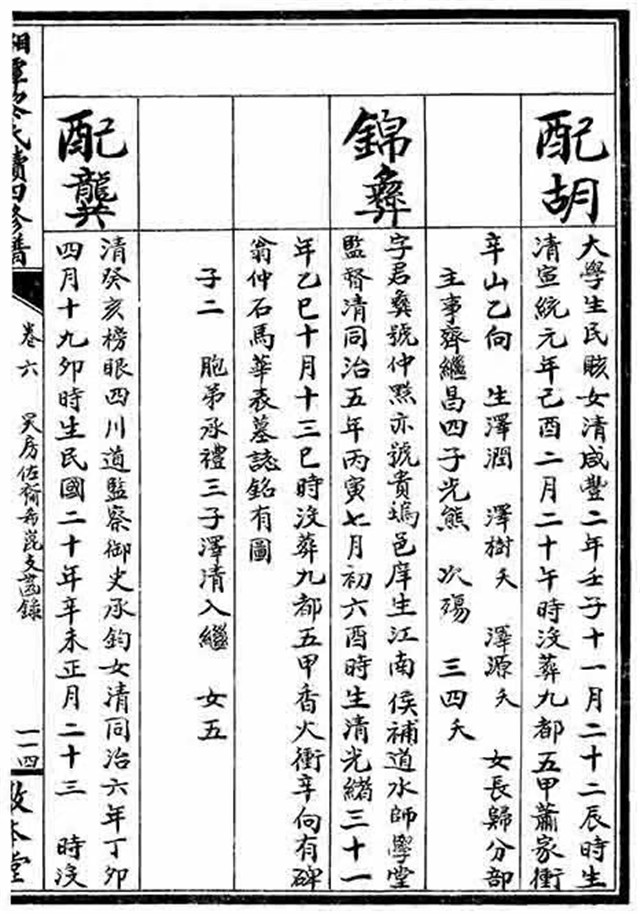 配胡
大學生民賅女清咸豐二年壬子十一月二十二辰時生
清宣統元年己酉二月二十午時沒葬九都五甲蕭家衝
辛山乙向 生澤潤 澤樹夭 澤源夭 女長歸分部
主事齊繼昌四子光熊 次殤 三四夭
錦彝
字君彝號仲黙亦號貴塢邑庠生江南候補道水師學堂
監督清同治五年丙寅七月初六酉時生清光緒三十一
年乙巳十月十三巳時沒葬九都五甲香火衝辛向有碑
翁仲石馬華表墓誌銘有圖
子二 胞弟承禮三子澤清入繼 女五
配龔
清癸亥榜眼四川道監察御史承鈞女清同治六年丁卯
四月十九卯時生民國二十年辛未正月二十三 時沒
氏續四修譜
卷六
房佐裔希崑支齒錄
一一四
敦本堂